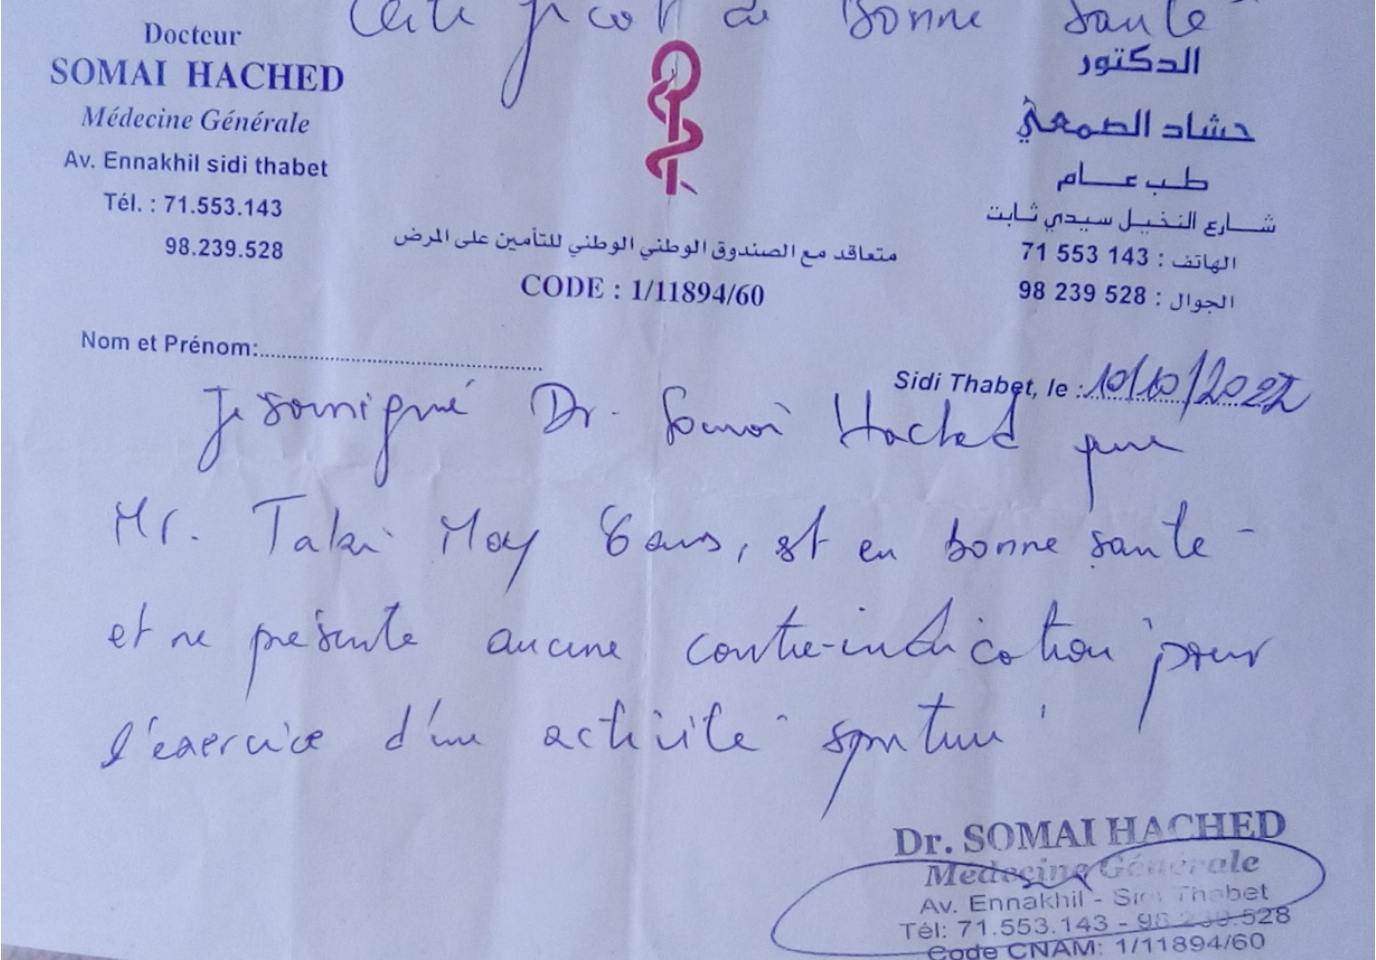 Certificat de Bonne santé
Docteur
SOMAI HACHED
Médecine Générale
Av. Ennakhil sidi thabet
Tél. : 71.553.143
98.239.528
الدكتور
حشاد الصمعي
طب عام
شارع النخيل سيدي ثابت
الهاتف : 71 553 143
الجوال : 98 239 528
متعاقد مع الصندوق الوطني الوطني للتأمين على المرض
CODE : 1/11894/60
Nom et Prénom:
Sidi Thabet, le : 10/10/2022
Je soussigné Dr. Somai Hached que
Mr. Taki May 6 ans, est en bonne santé
et ne présente aucune contre-indication pour
l'exercice d'une activité sportive
Dr. SOMAI HACHED
Médecine Générale
Av. Ennakhil - Sidi Thabet
Tél: 71.553.143 - 98.239.528
Code CNAM: 1/11894/60